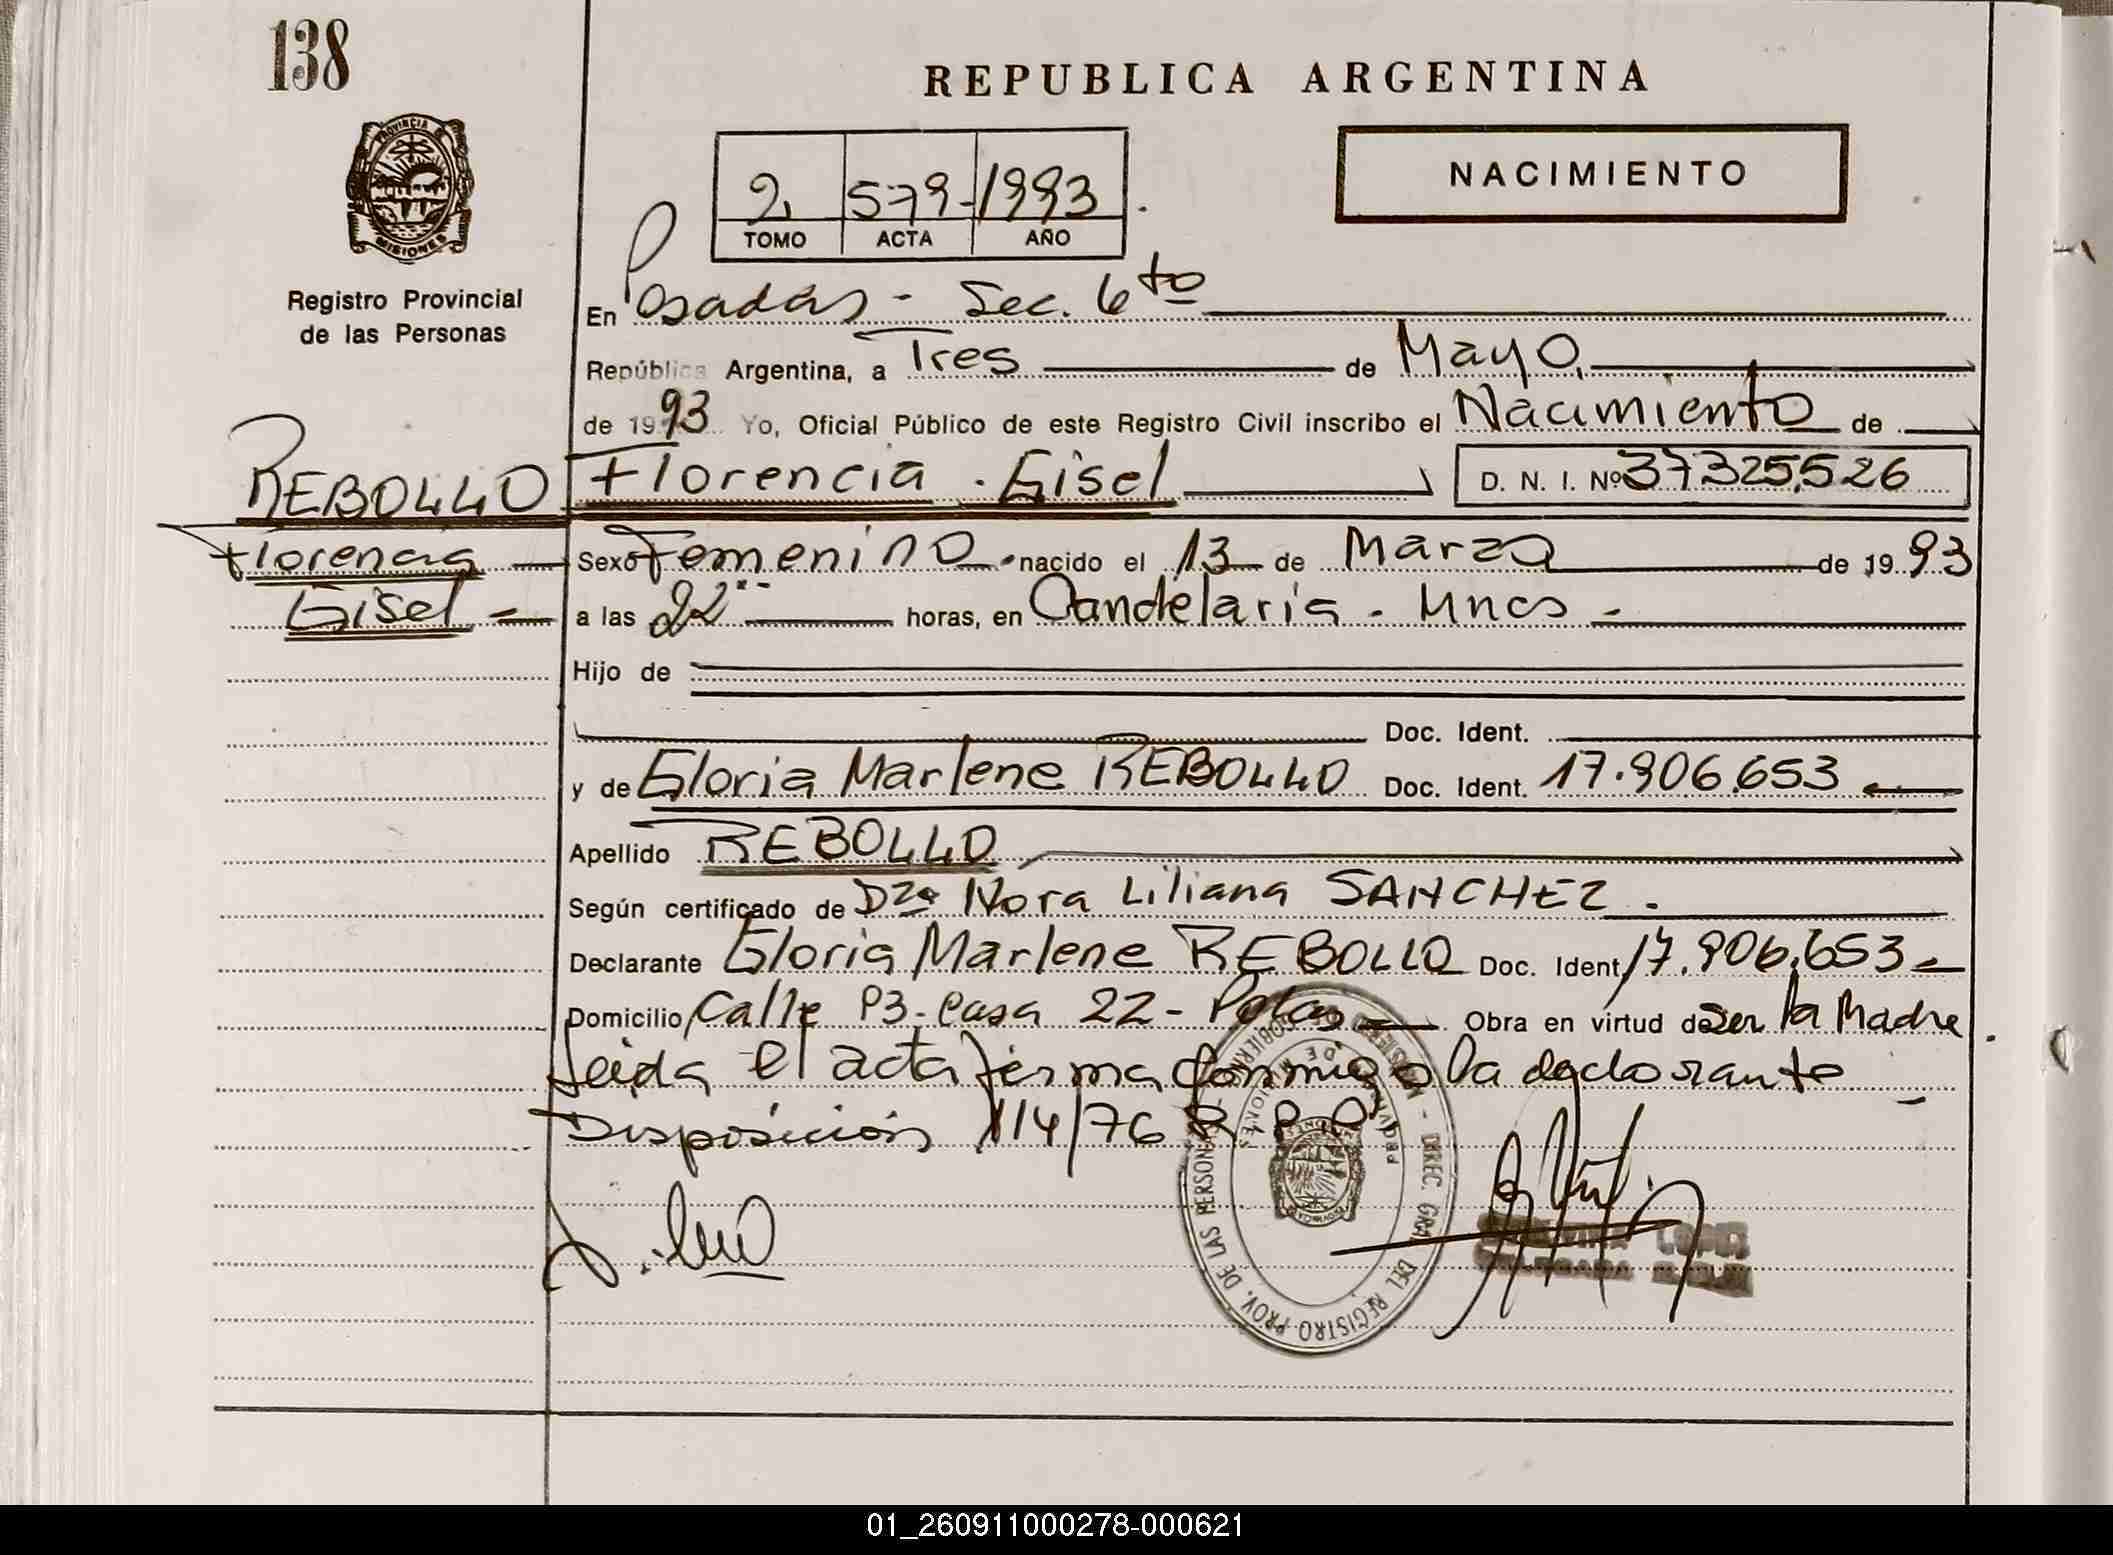 138
REPUBLICA ARGENTINA
PROVINCIA DE
MISIONES
NACIMIENTO
2 579 1993
TOMO ACTA AÑO
Registro Provincial
de las Personas
En Posadas - Sec. 6to
República Argentina, a Tres de Mayo,
de 1993 Yo, Oficial Público de este Registro Civil inscribo el Nacimiento de
REBOLLO Florencia Gisel D. N. I. Nº 37.325.526
Florencia Sexo Femenino nacido el 13 de Marzo de 1993
Gisel a las 22 horas, en Candelaria - Mnes -
Hijo de
Doc. Ident.
y de Gloria Marlene REBOLLO Doc. Ident. 17.906.653
Apellido REBOLLO
Según certificado de Dra Nora Liliana SANCHEZ.
Declarante Gloria Marlene REBOLLO Doc. Ident. 17.906.653
Domicilio Calle P3 - Casa 22 - Pdas Obra en virtud de ser la Madre
Leida el acta firma conmigo la declarante
Disposición 114/76 R.P.P.
DIREC. GRAL. DEL REGISTRO PROV. DE LAS PERSONAS
LOPEZ
01_260911000278-000621